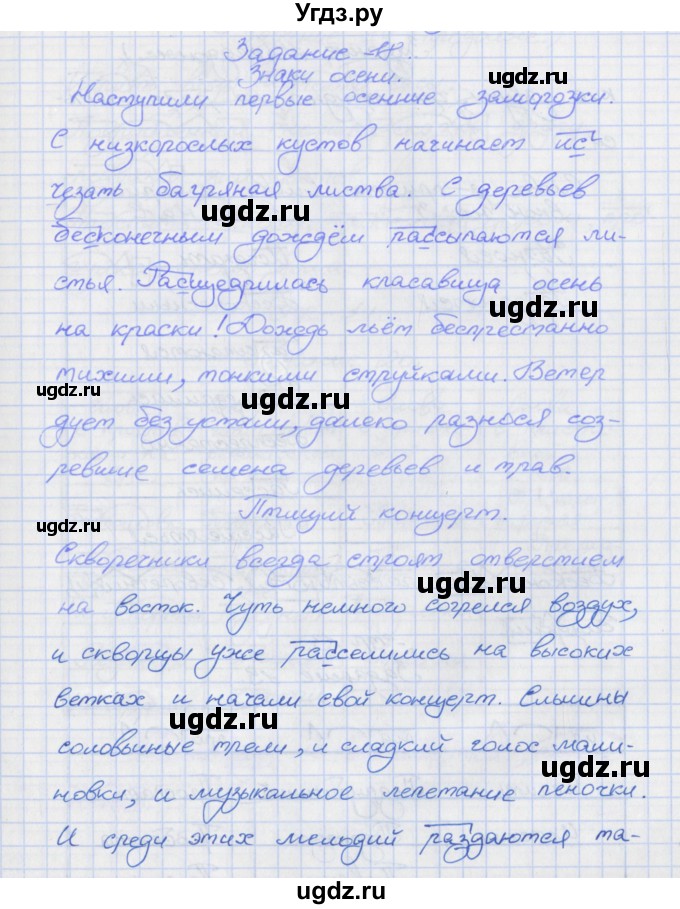 Угдз.ру
Задание 18.
Знаки осени.
Наступили первые осенние заморозки.
С низкорослых кустов начинает ис-
чезать багряная листва. С деревьев
бесконечным дождём рассыпаются ли-
стья. Расщедрилась красавица осень
на краски! Дождь льёт беспрестанно
тихими, тонкими струйками. Ветер
дует без устали, далеко разнося соз-
ревшие семена деревьев и трав.
Птичий концерт.
Скворечники всегда строят отверстием
на восток. Чуть немного согрелся воздух,
и скворцы уже расселились на высоких
ветках и начали свой концерт. Слышны
соловьиные трели, и сладкий голос мали-
новки, и музыкальное лепетание пеночки.
И среди этих мелодий раздаются та-
ugdz.ru
ugdz.ru
ugdz.ru
ugdz.ru
ugdz.ru
ugdz.ru
ugdz.ru
ugdz.ru
ugdz.ru
ugdz.ru
ugdz.ru